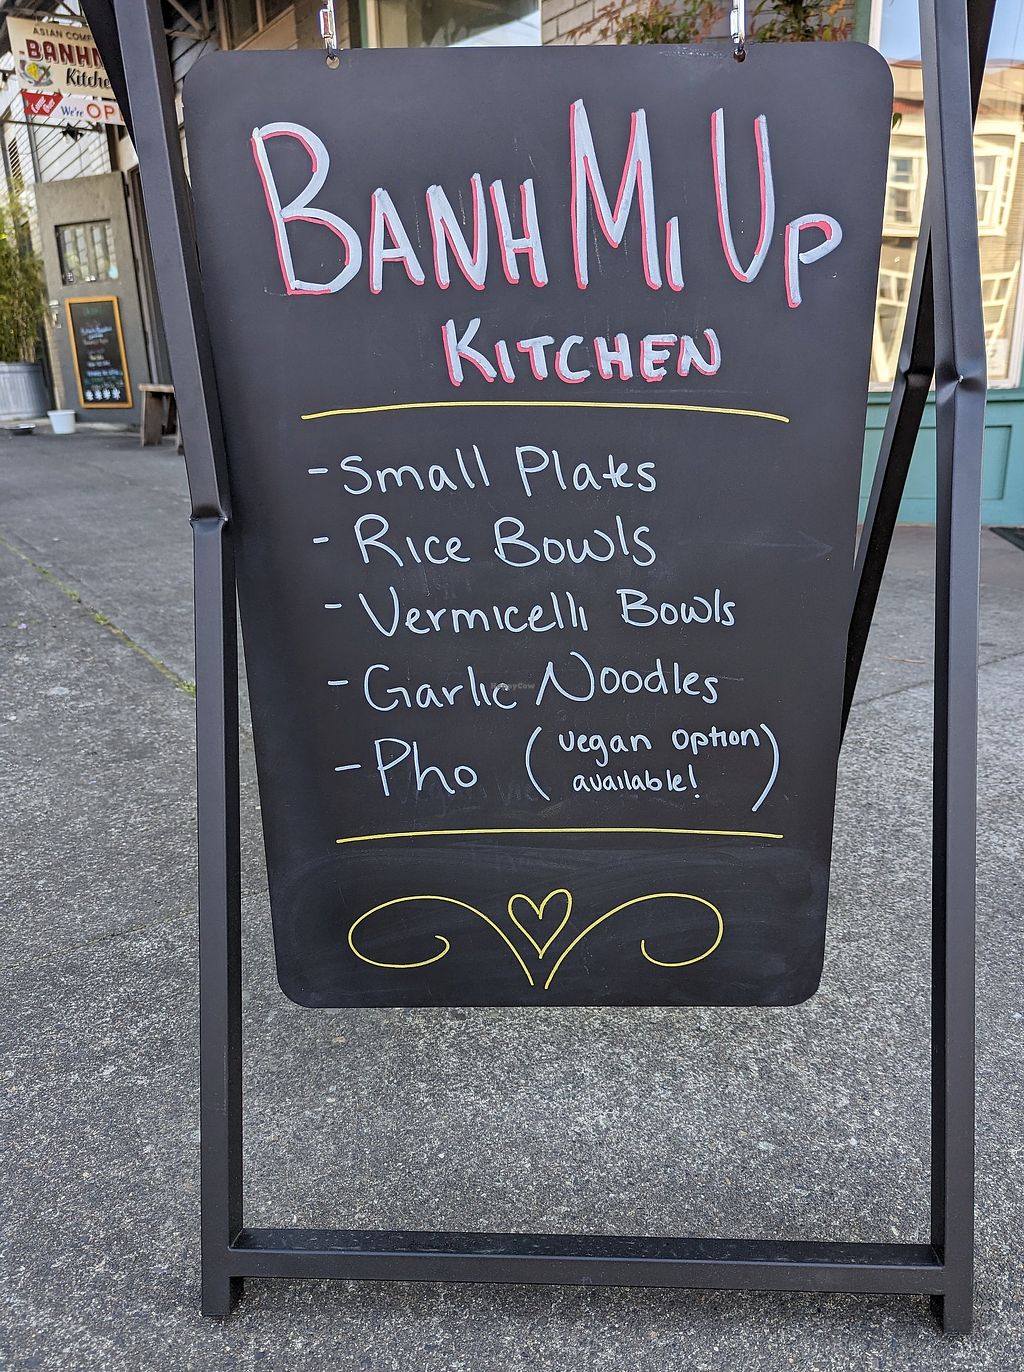 ASIAN
BANH
Kitche
Come
Over
We're OP
BANH MI UP
KITCHEN
- Small Plates
- Rice Bowls
- Vermicelli Bowls
- Garlic Noodles
HappyCow
- Pho (vegan option
available!)